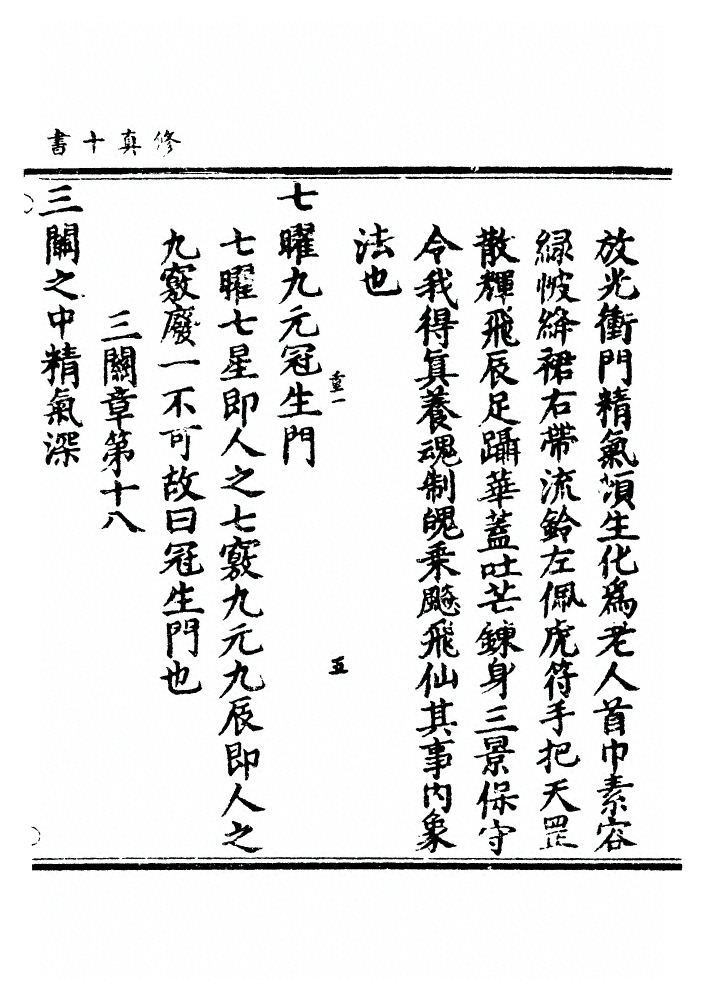 修真十書
放光衝門精氣湏生化爲老人首巾素容
綠帔絳裙右帶流鈴左佩虎符手把天罡
散輝飛辰足躡華蓋吐芒鍊身三景保守
令我得眞養魂制魄乗飈飛仙其事内象
法也
重一
五
七曜九元冠生門
七曜七星即人之七竅九元九辰即人之
九竅廢一不可故曰冠生門也
三關章第十八
三關之中精氣深